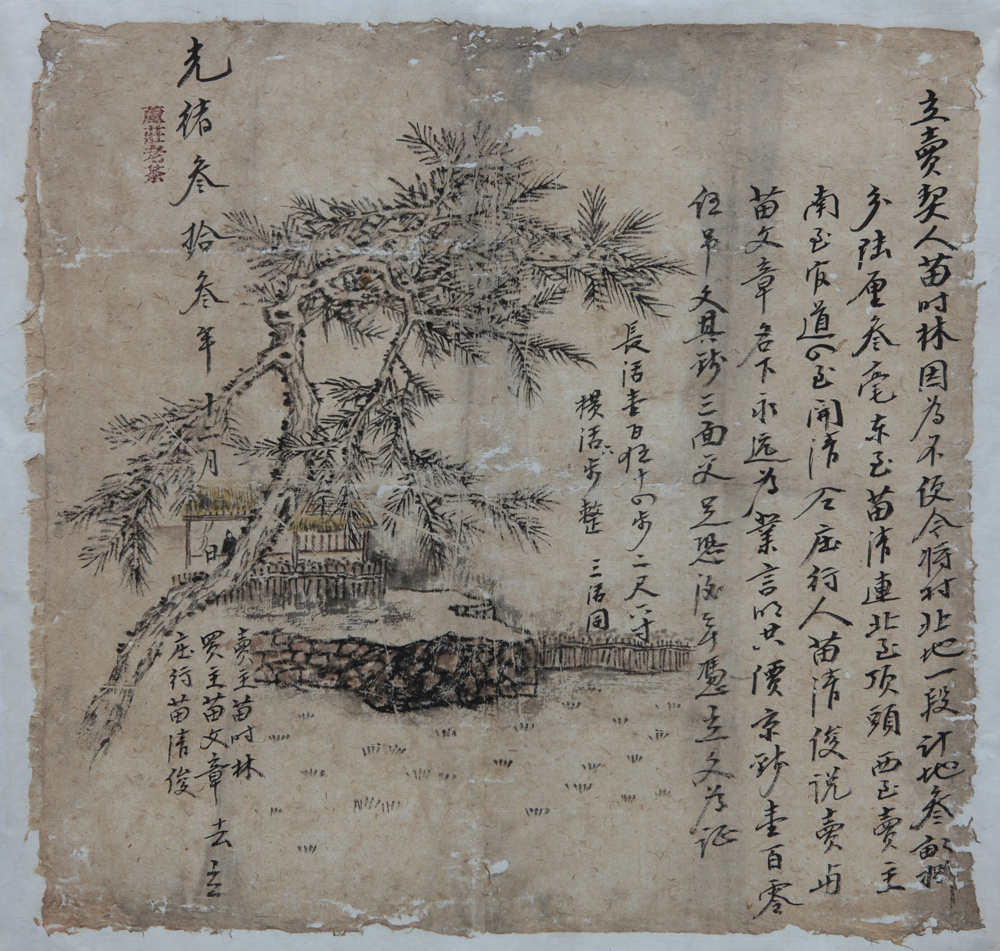 立賣契人苗时林因为不便今将村北地一段计地叁畝
分陆厘叁毫东至苗清連北至顶頭西至賣主
南至官道四至開清仝庄行人苗清俊说賣与
苗文章名下永远为業言明共價京钱壹百零
伍吊文其钱三面交足恐後年憑立文为证
長活壹百伍十四步二尺一寸
横活步整 三活同
光绪叁拾叁年十二月 日 去立
賣主苗时林
買主苗文章
庄行苗清俊
蘆莊老茶